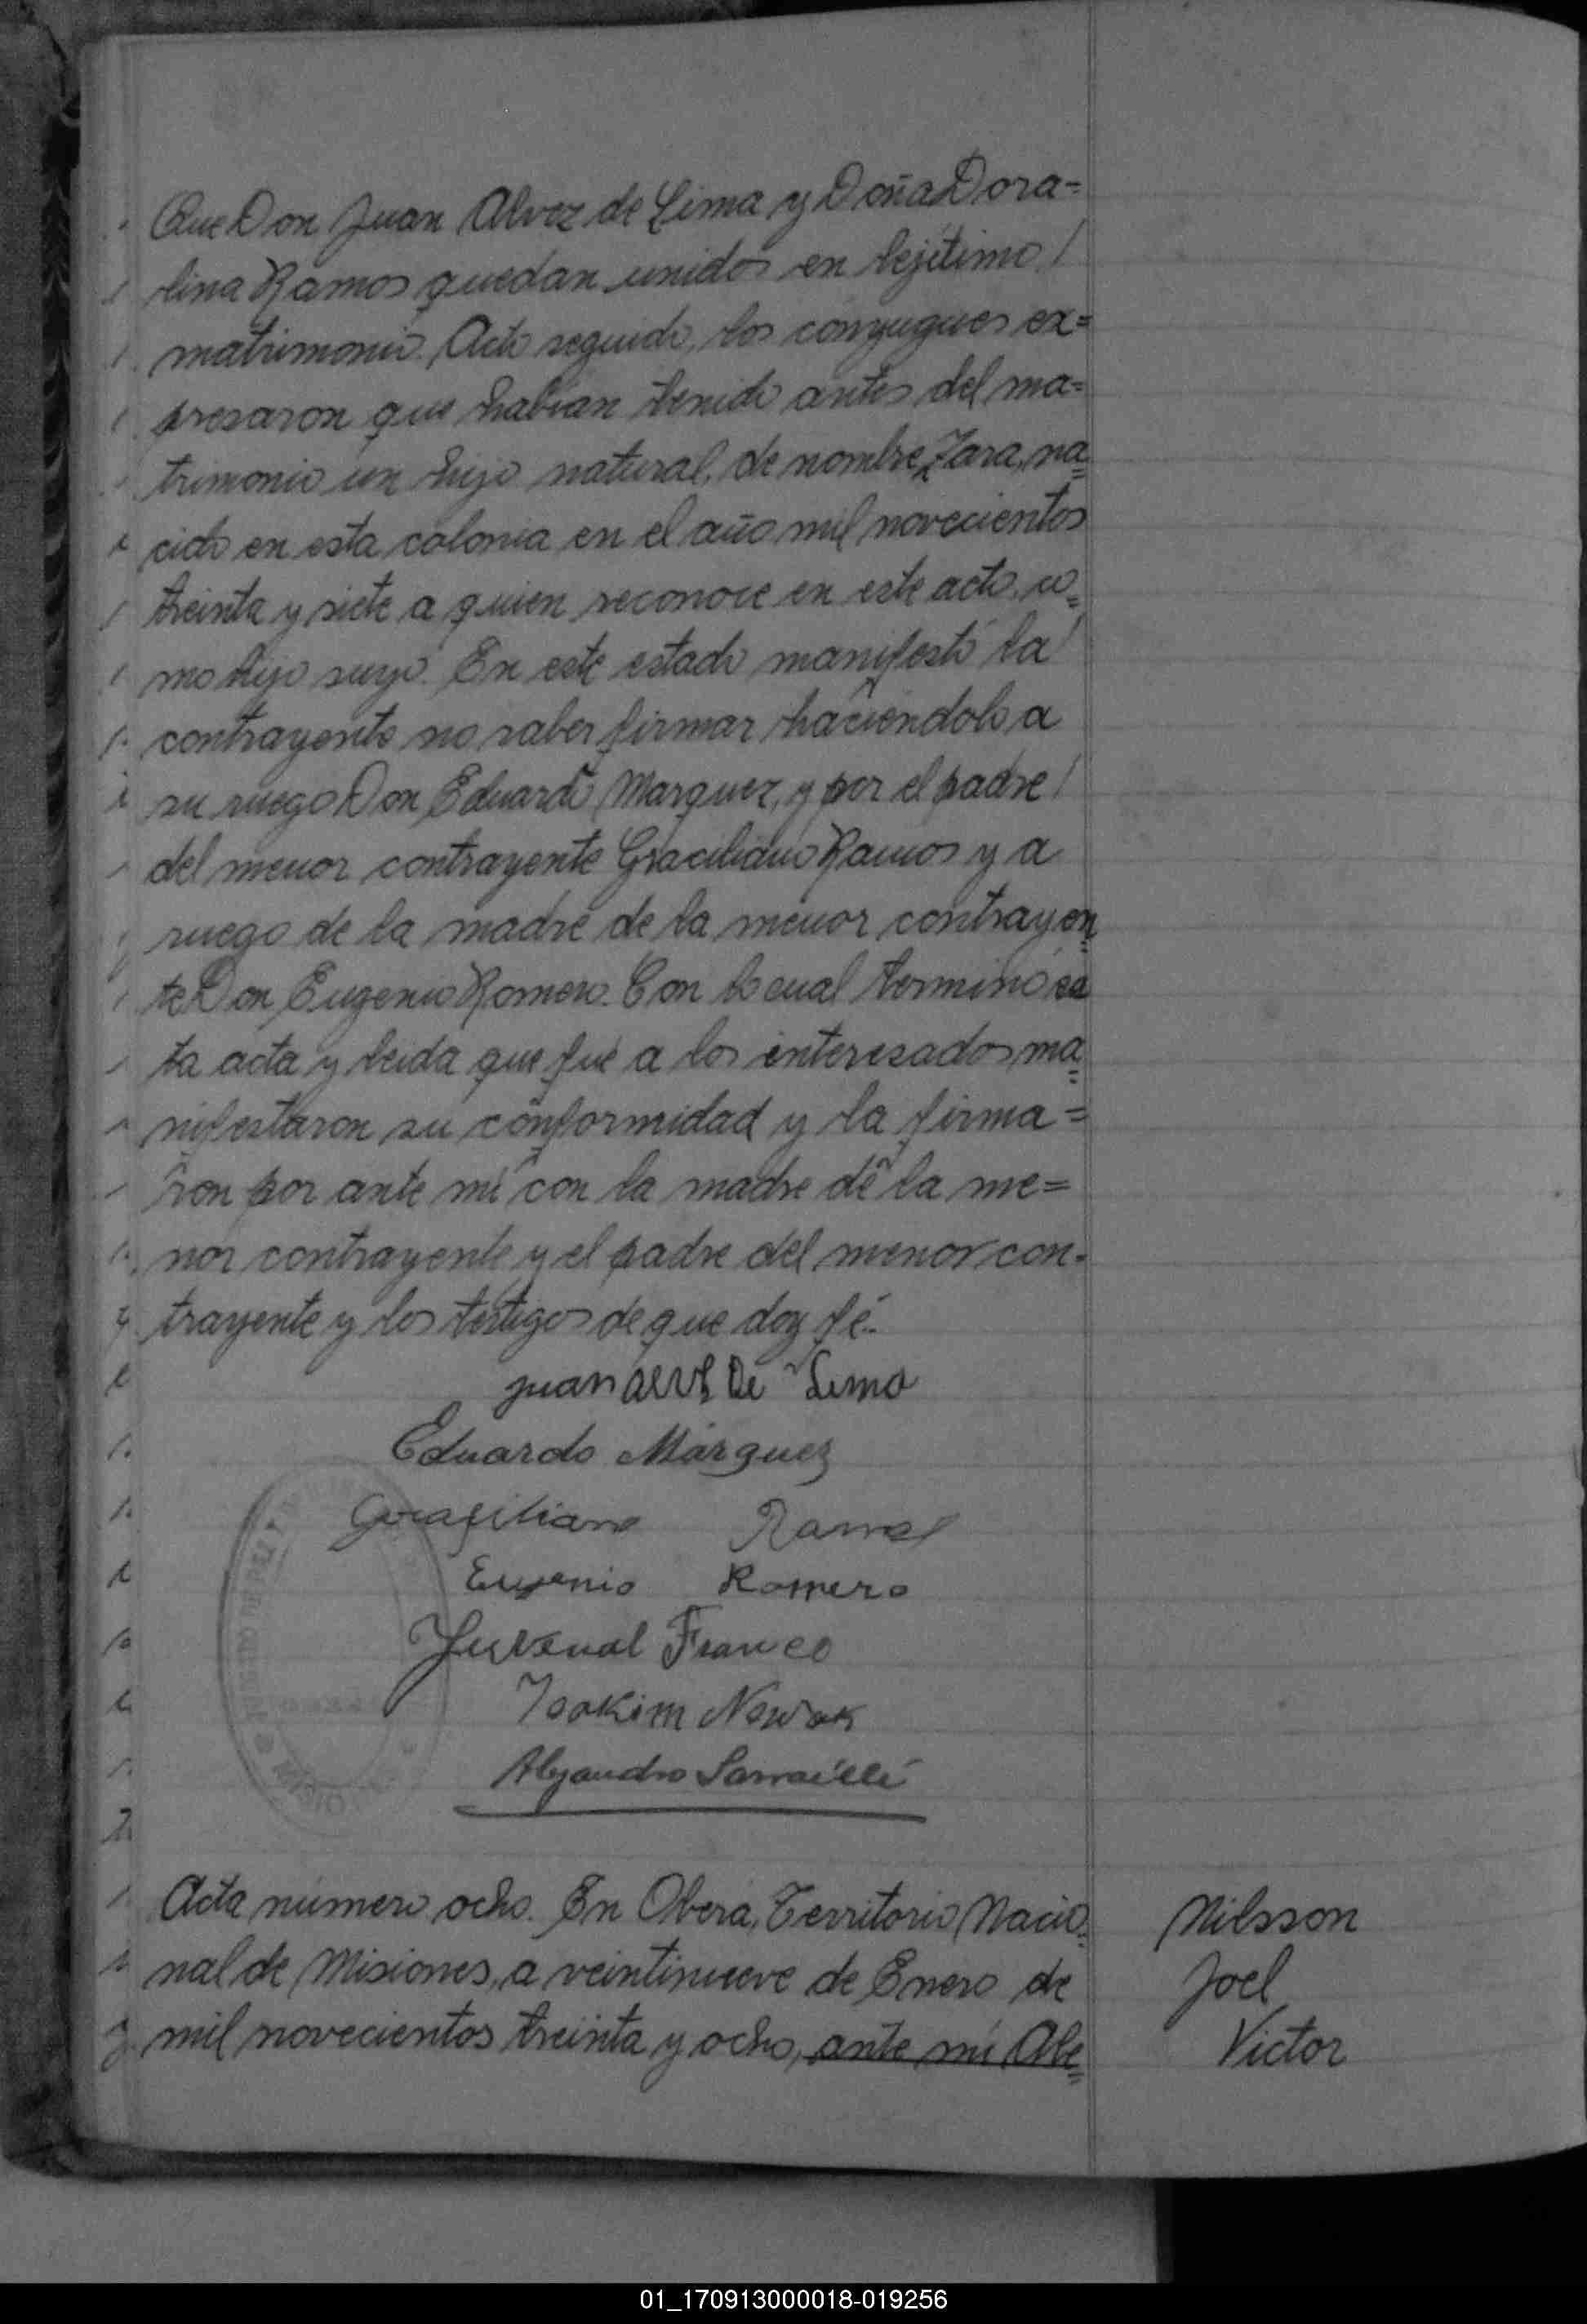 Que Don Juan Alvez de Lima y Doña Dora=
lina Ramos quedan unidos en lejítimo /
matrimonio. Acto seguido, los conyugues ex=
presaron que habían tenido antes del ma=
trimonio un hijo natural, de nombre Zara, na=
cido en esta colonia en el año mil novecientos
treinta y siete a quien reconoce en este acto, co=
mo hijo suyo. En este estado manifestó la /
contrayente no saber firmar haciéndolo a
su ruego Don Eduardo Marquez, y por el padre /
del menor contrayente Graciliano Ramos y a
ruego de la madre de la menor contrayen=
te Don Eugenio Romero. Con lo cual terminó es
ta acta y leida que fué a los interesados ma=
nifestaron su conformidad y la firma=
ron por ante mí con la madre de la me=
nor contrayente y el padre del menor con-
trayente y los testigos de que doy fé.-
juan alvez De Lima
Eduardo Márquez
Grasiliano Ramos
Eugenio Romero
Juvenal Franco
Joakim Nowak
Alejandro Sarraillé
Acta número ocho. En Oberá, Territorio Nacio=
nal de Misiones, a veintinueve de Enero de
mil novecientos treinta y ocho, ante mí Abe=
Nilsson
Joel
Victor
MISIO
01_170913000018-019256